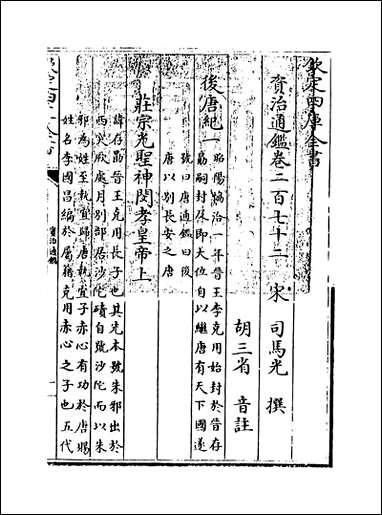 欽定四庫全書
資治通鑑卷二百七十二 宋 司馬光 撰
胡三省 音註
後唐紀一 昭陽協洽一年晉王李克用始封於晉存
勗嗣封及即大位自以繼唐有天下國遂
號曰唐通鑑曰後
唐以別長安之唐
莊宗光聖神閔孝皇帝上
諱存勗晉王克用長子也其先本號朱邪出於
西突厥處月別部居沙陀磧自號沙陀而以朱
邪為姓至執宜歸唐執宜子赤心有功於唐賜
姓名李國昌編於屬籍克用赤心之子也五代
資治通鑑